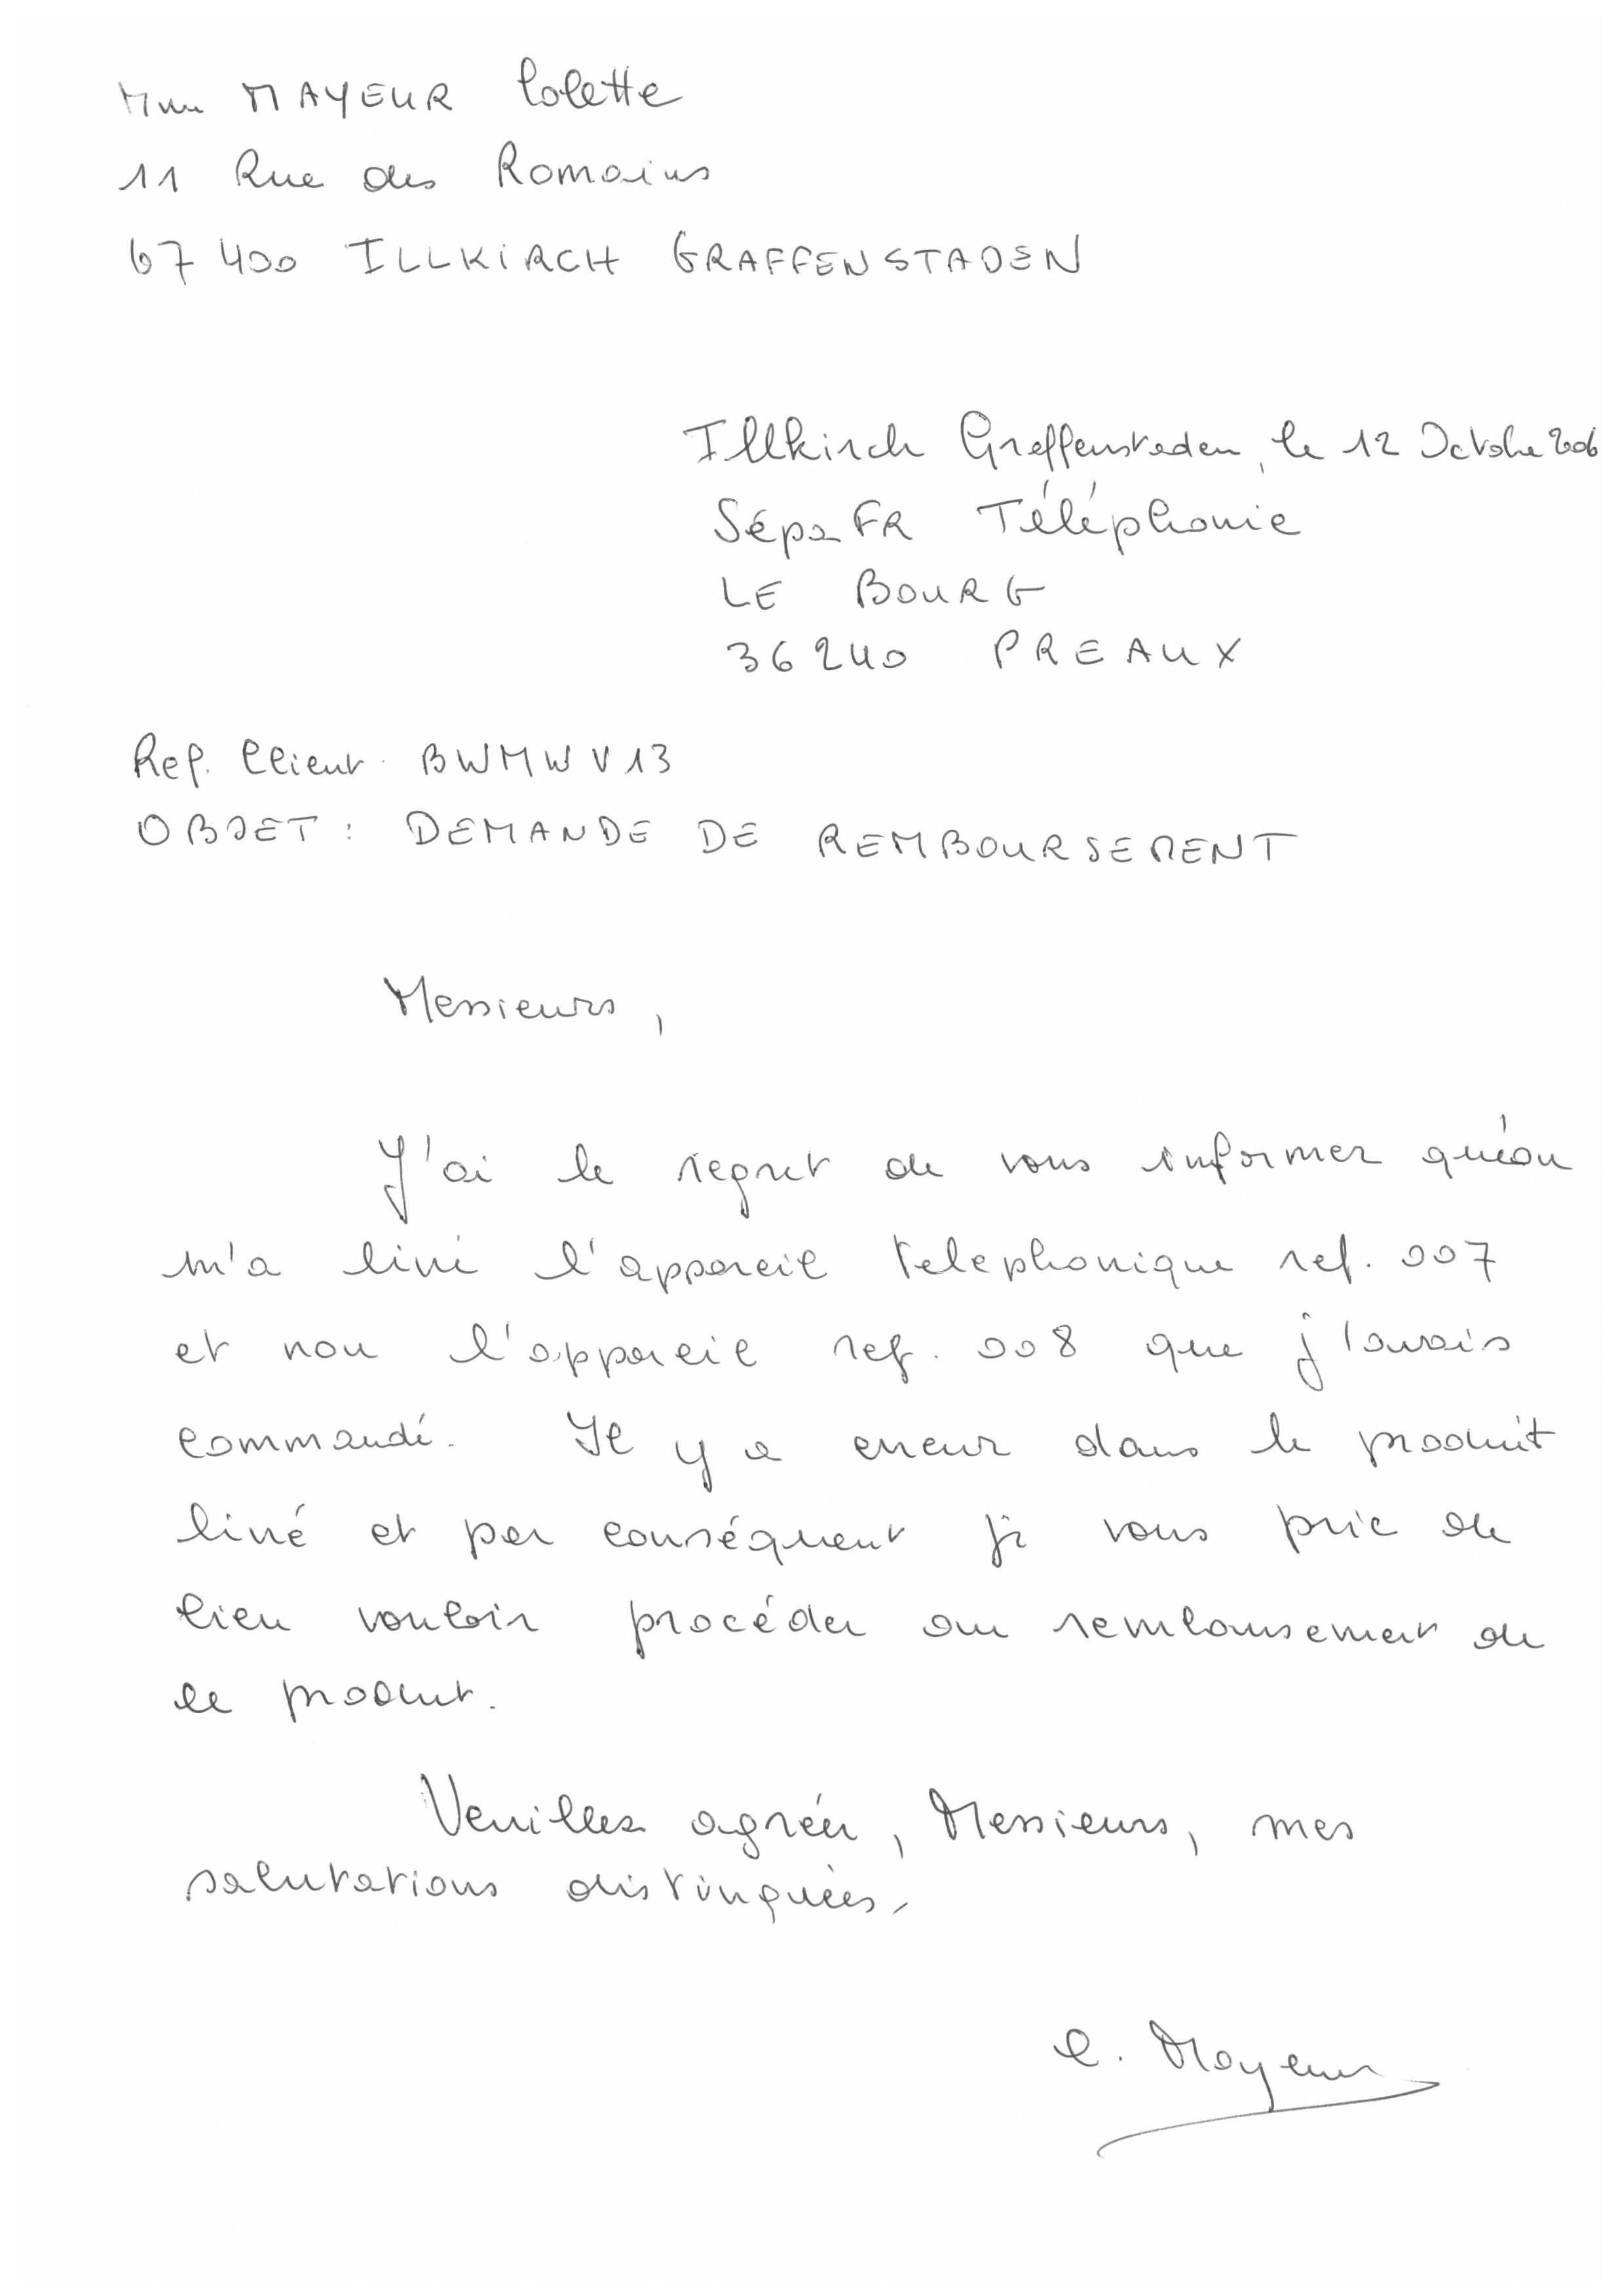 Mme MAYEUR Colette
11 Rue des Romains
67 400 ILLKIRCH GRAFFENSTADEN
Illkirch Graffenstaden, le 12 Octobre 2006
SépaFR Téléphonie
LE BOURG
36240 PREAUX
Ref. Client. BWMWV13
OBJET : DEMANDE DE REMBOURSEMENT
Messieurs,
J'ai le regret de vous informer qu'on
m'a livré l'appareil telephonique ref. 007
et non l'appareil ref. 008 que j'avais
commandé. Il y a erreur dans le produit
livré et par conséquent je vous prie de
bien vouloir procéder au remboursement de
ce produit.
Veuillez agréer, Messieurs, mes
salutations distinguées.
C. Mayeur